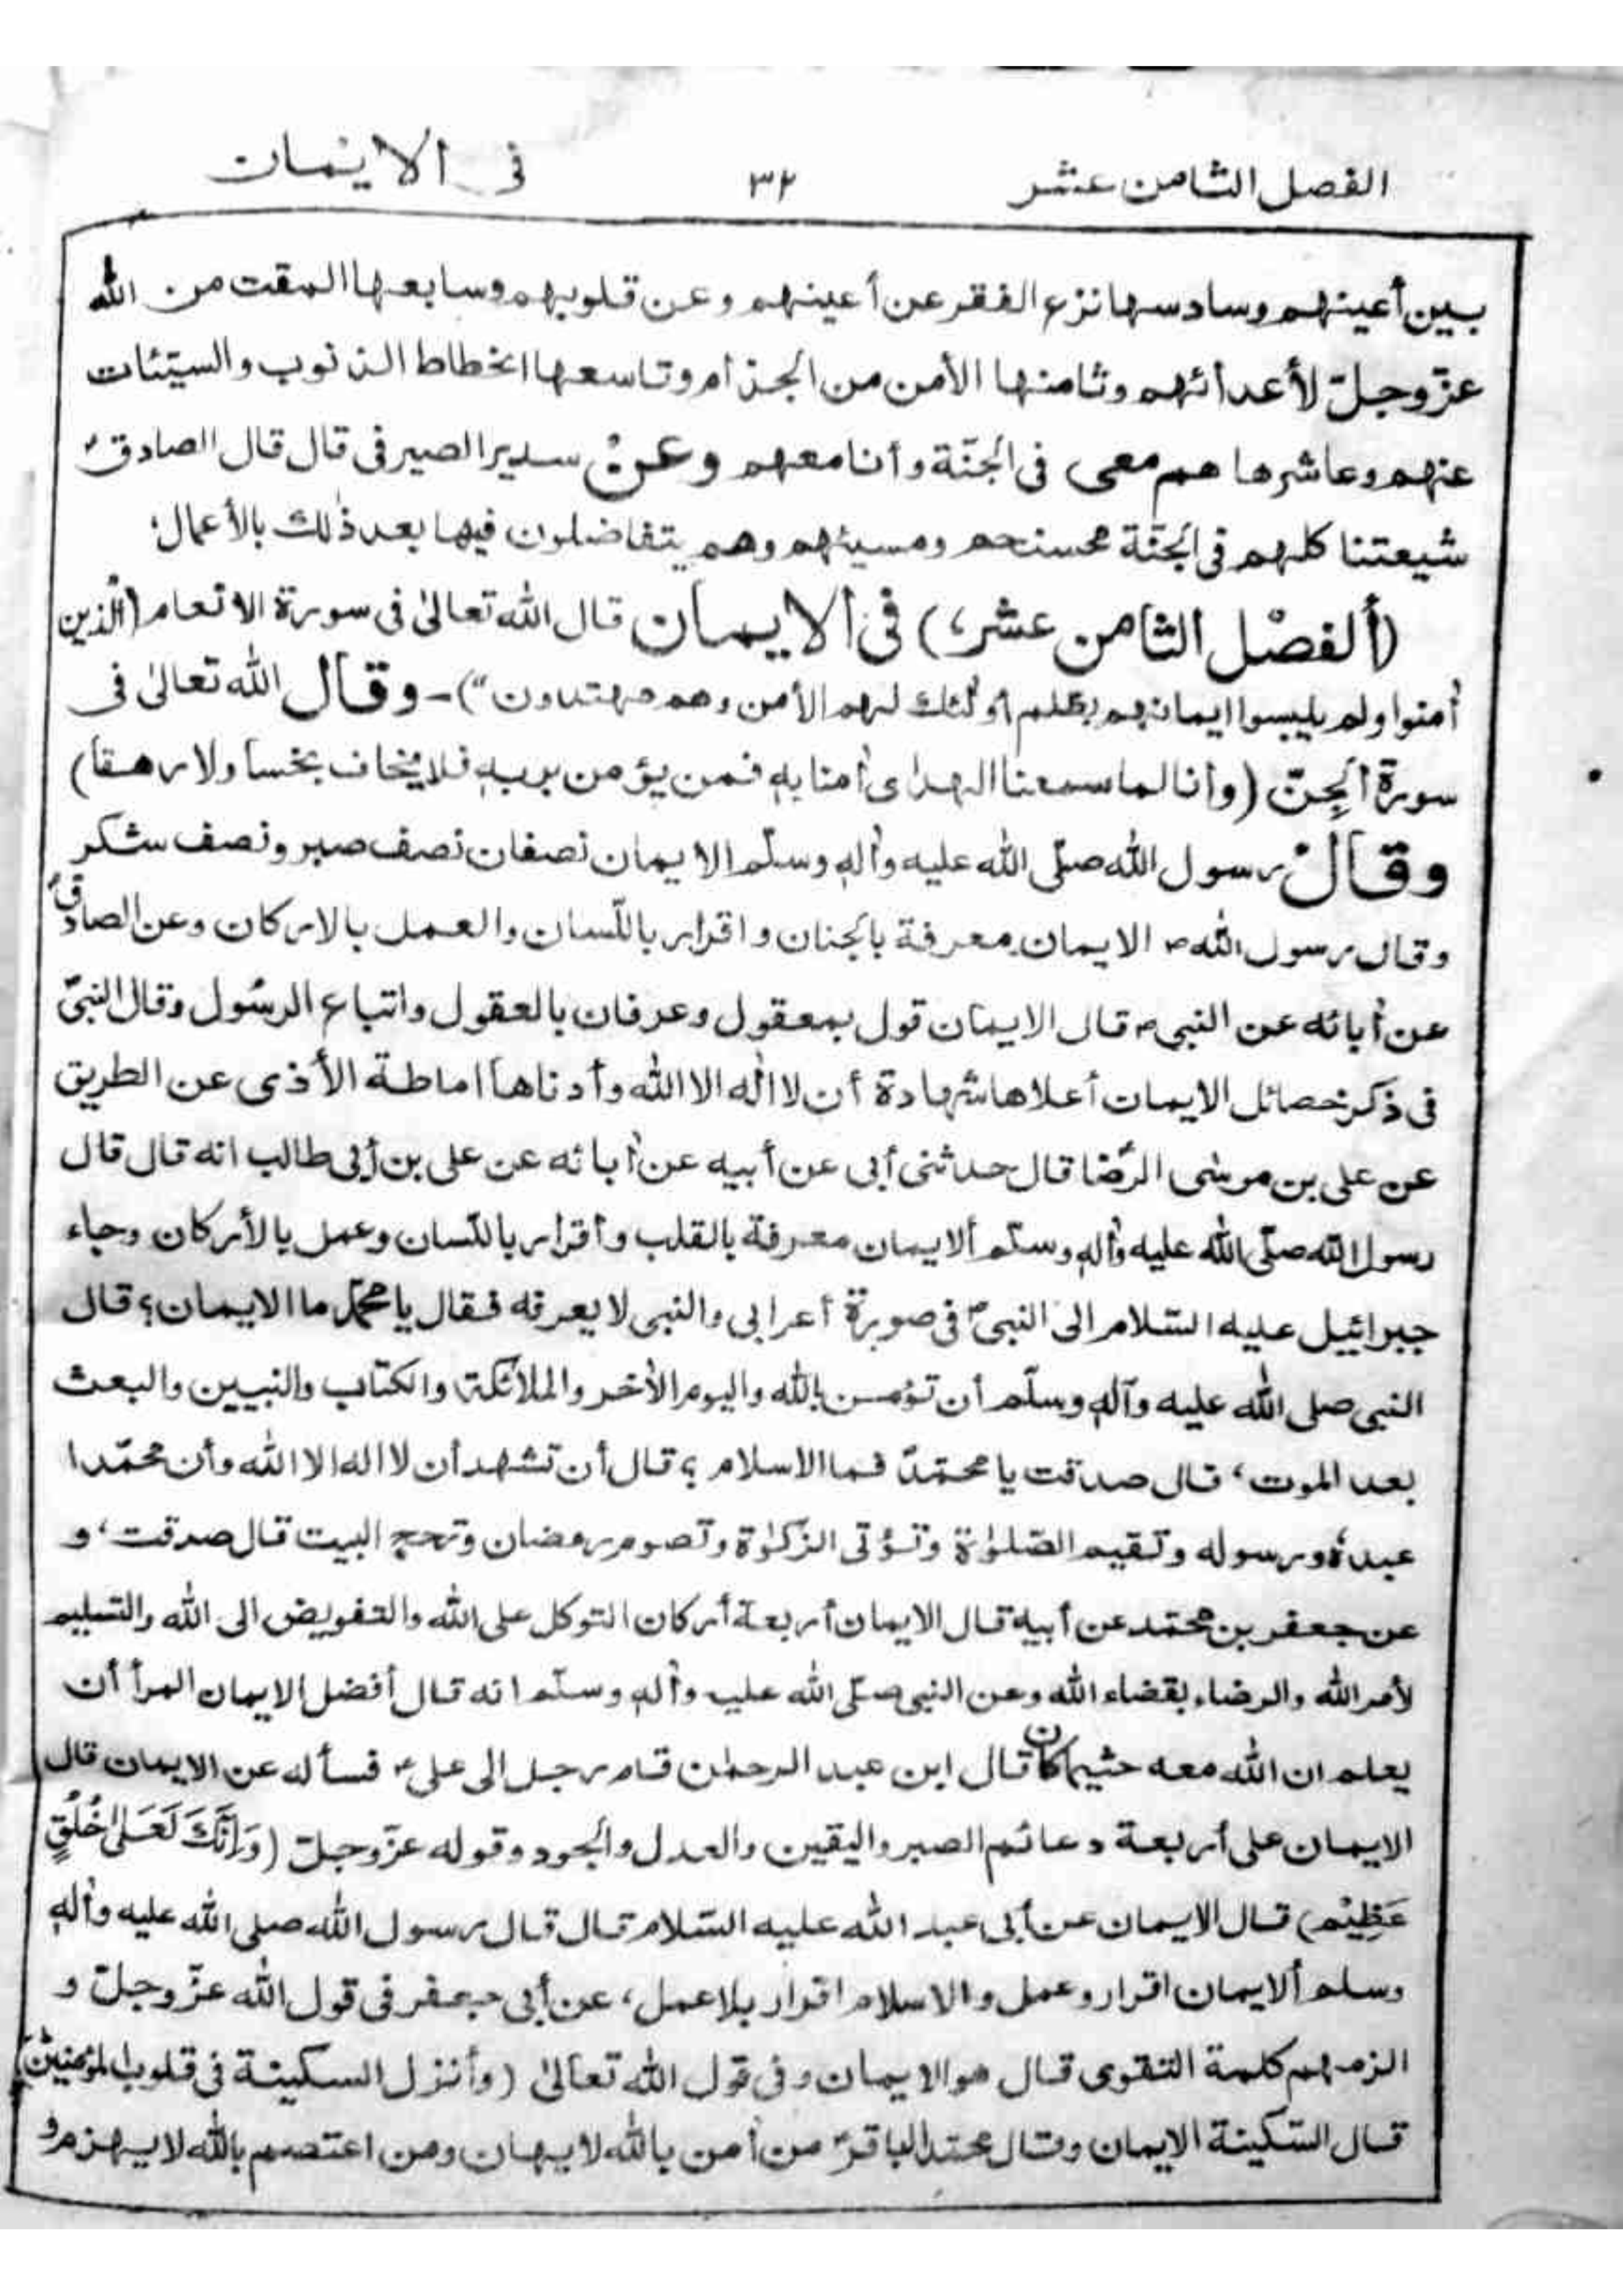 الفصل الثامن عشر ٣٢ فى الايمان
بين أعينهم وسادسها نزع الفقر عن أعينهم وعن قلوبهم وسابعها المقت من الله
عزّ وجلّ لأعدائهم وثامنها الأمن من الجذام وتاسعها انحطاط الذنوب والسيّئات
عنهم وعاشرها هم معى فى الجنّة وأنا معهم وعن سدير الصيرفى قال قال الصادقؑ
شيعتنا كلهم فى الجنّة محسنهم ومسيئهم وهم يتفاضلون فيها بعد ذٰلك بالأعمال؛
(ألفصْل الثامن عشر،) فى ألايمان قال الله تعالىٰ فى سورة الانعام (الّذين
اٰمنوا ولم يلبسوا ايمانهم بظلم أولٰئك لهم الأمن وهم مهتدون") - وقال الله تعالىٰ فى
سورة الجِنّ (وأنا لما سمعنا الهدىٰ اٰمنا به فمن يؤمن بربه فلا يخاف بخسا ولا رهقا)
وقال رسول الله صلّى الله عليه واٰله وسلّم الايمان نصفان نصف صبر ونصف شكر
وقال رسول الله ص الايمان معرفة بالجنان واقرار باللّسان والعمل بالاركان وعن الصادقؑ
عن اٰبائه عن النبى ص قال الايمان قول بمعقول وعرفان بالعقول واتباع الرسُول وقال النبىّ
فى ذكر خصائل الايمان أعلاها شهادة أن لا اله الا الله وأدناها اماطة الأذى عن الطريق
عن على بن موسى الرّضا قال حدثنى أبى عن أبيه عن اٰبائه عن على بن أبى طالب انه قال قال
رسول الله صلّى الله عليه واٰله وسلّم ألايمان معرفة بالقلب وأقرار باللّسان وعمل بالأركان وجاء
جبرائيل عليه السّلام الى النبىؐ فى صورة أعرابى والنبى لا يعرفه فقال يا محمّد ما الايمان؟ قال
النبى صلى الله عليه وآله وسلّم أن تؤمن بالله واليوم الأخر والملائكة والكتاب والنبيين والبعث
بعد الموت، قال صدقت يا محمّدّ فما الاسلام ؟ قال أن تشهد أن لا اله الا الله وأن محمّدا
عبدهٗ ورسوله وتقيم الصّلوٰة وتؤتى الزّكوٰة وتصوم رمضان وتحج البيت قال صدقت، و
عن جعفر بن محمّد عن أبيه قال الايمان أربعة أركان التوكل على الله والتفويض الى الله والتسليم
لأمر الله والرضاء بقضاء الله وعن النبى صلّى الله عليه واٰله وسلّم انه قال أفضل الايمان المرأ أن
يعلم ان الله معه حثيما كان قال ابن عبد الرحمٰن قام رجل الى علىؑ فسأله عن الايمان قال
الايمان على أربعة دعائم الصبر واليقين والعدل والجود وقوله عزّ وجلّ (وَاِنَّكَ لَعَلىٰ خُلُقٍ
عَظِيْم) قال الايمان عن أبى عبد الله عليه السّلام قال قال رسول الله صلى الله عليه واٰله
وسلم ألايمان اقرار وعمل والاسلام اقرار بلا عمل، عن أبى جعفر فى قول الله عزّ وجلّ و
الزمهم كلمة التقوى قال هو الايمان وفى قول الله تعالىٰ (وأنزل السكينة فى قلوب المؤمنين)
قال السّكينة الايمان وقال محمّد الباقرؑ من اٰمن بالله لا يهان ومن اعتصم بالله لا يهزم و